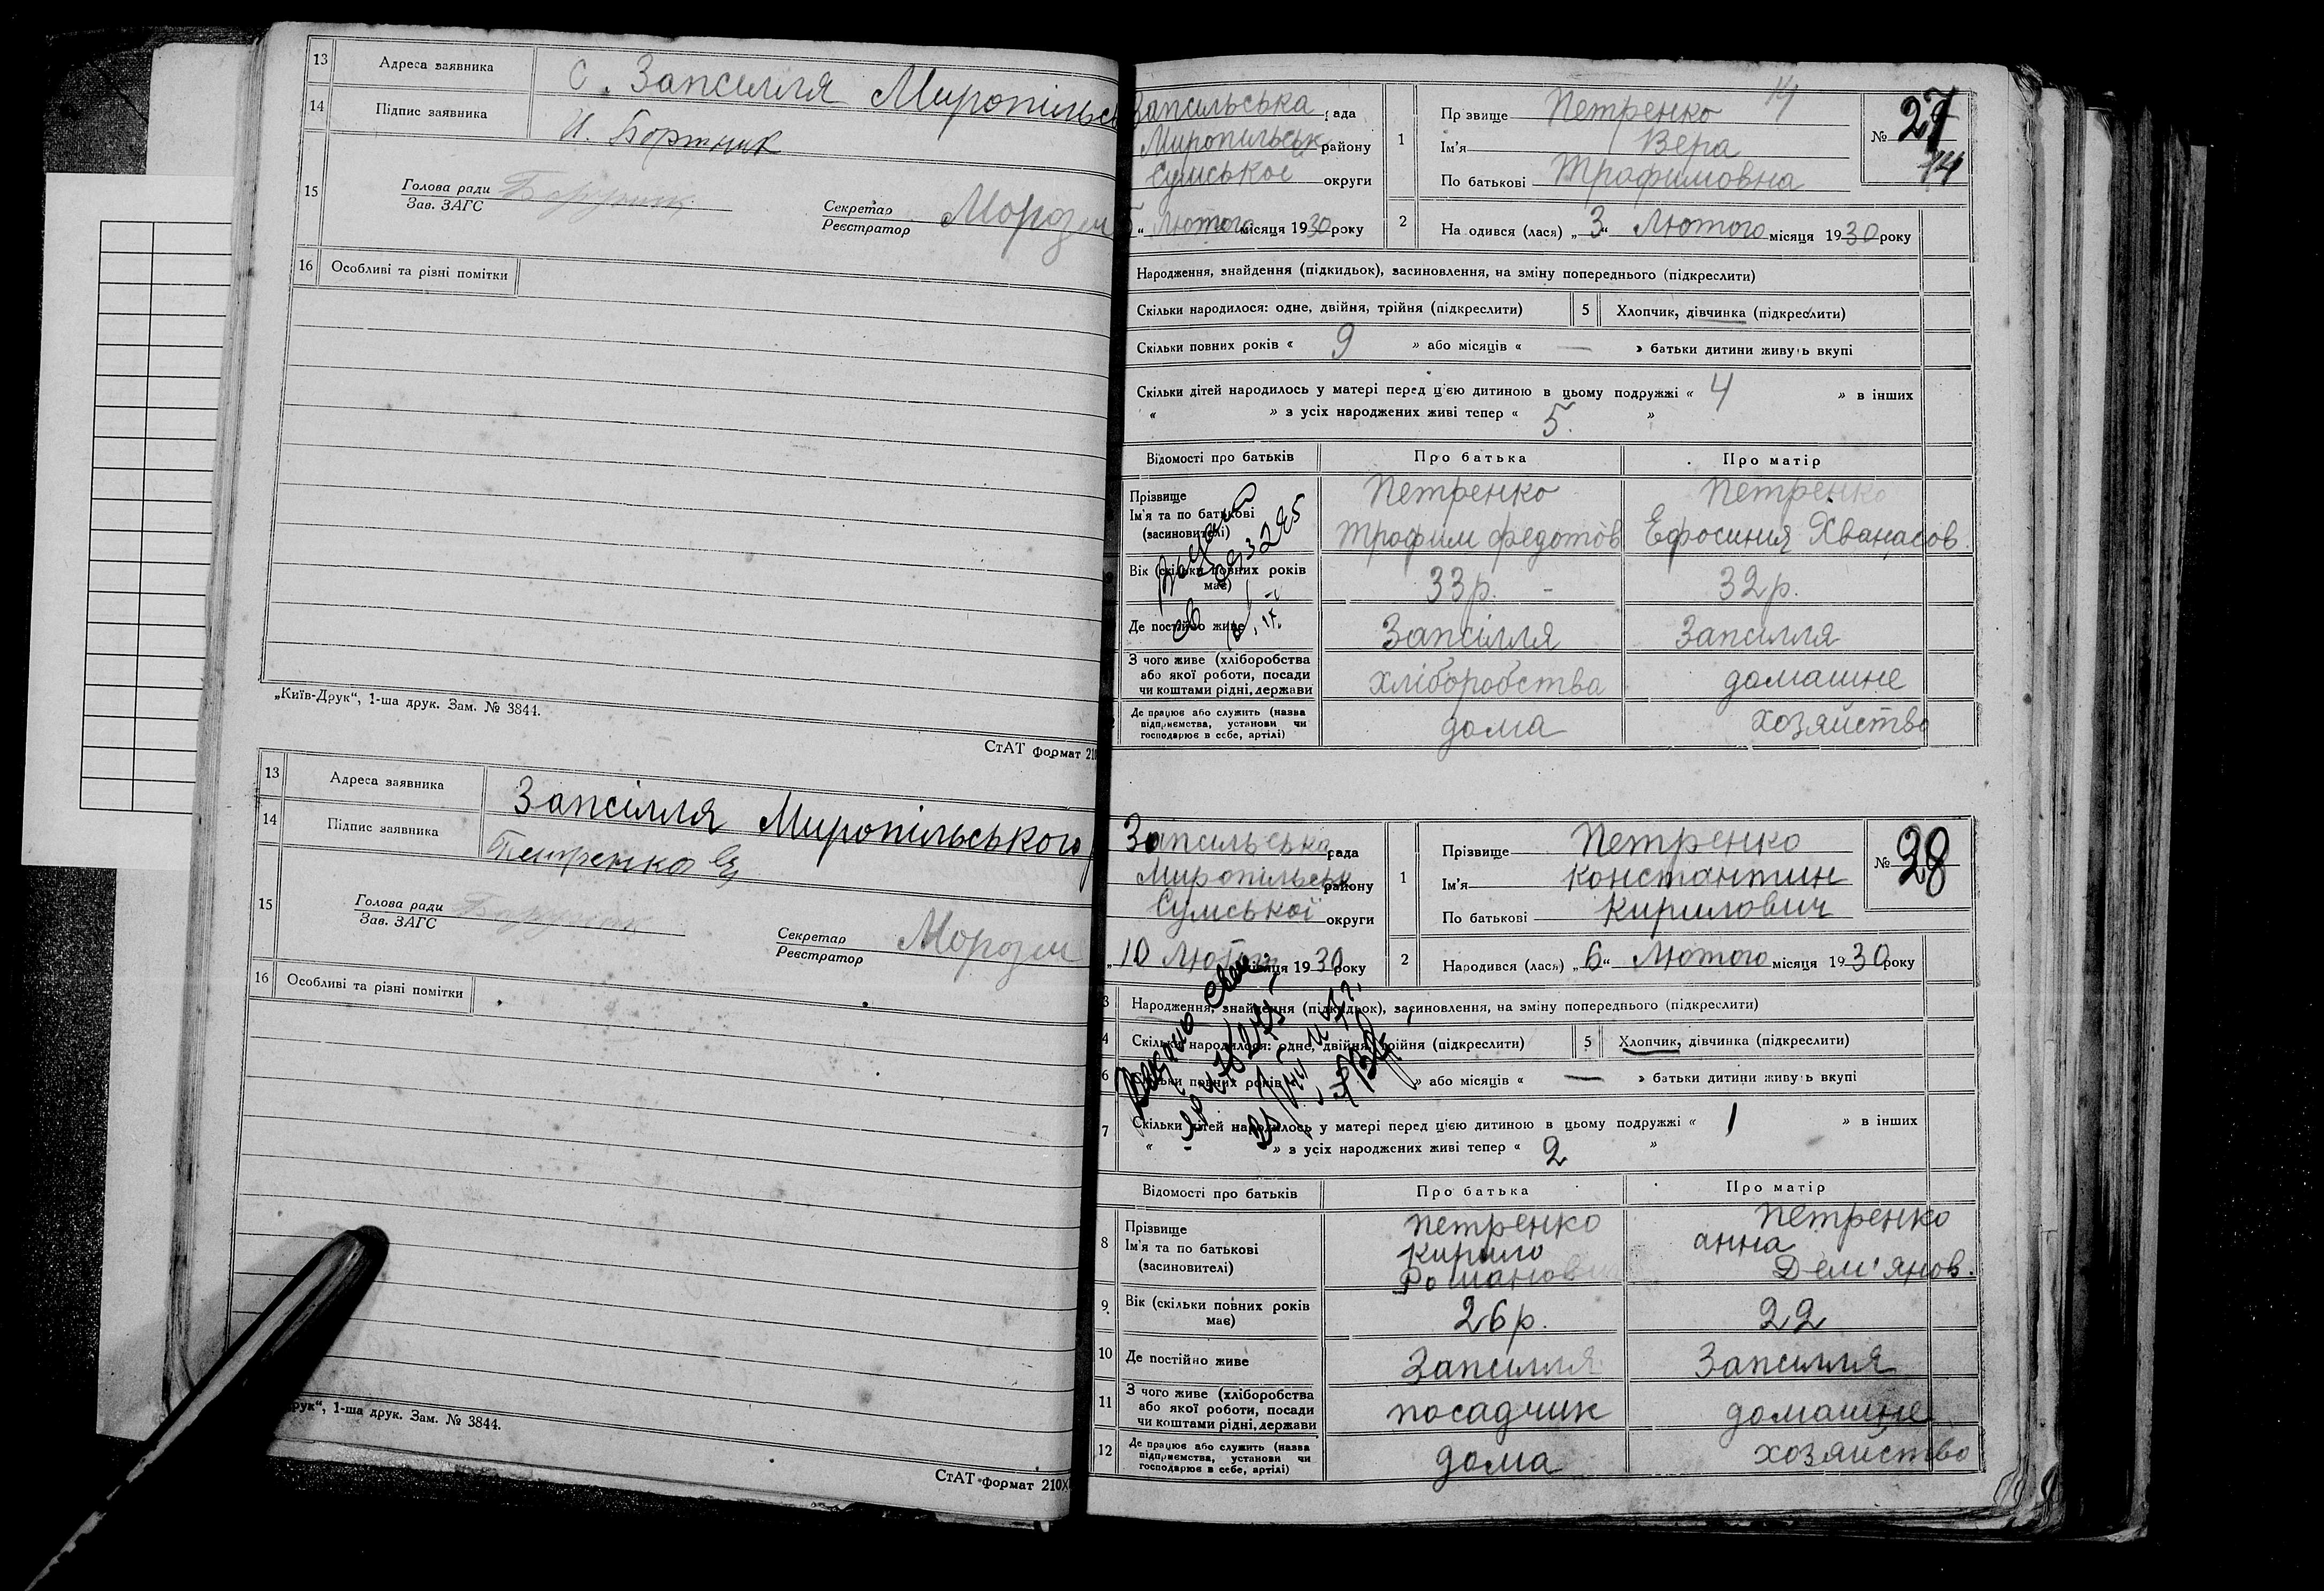 13 Адреса заявника с. Запсилля Миропільсь
14 Підпис заявника И. Бортник
15 Голова ради
Зав. ЗАГС
Секретар
Реєстратор
16 Особливі та різні помітки
„Київ-Друк“, 1-ша друк. Зам. № 3844.
СтАТ формат 210
13 Адреса заявника Запсілля Миропільського
14 Підпис заявника Петренко
15 Голова ради
Зав. ЗАГС
Секретар
Реєстратор
16 Особливі та різні помітки
рук“, 1-ша друк. Зам. № 3844.
СтАТ формат 210Х
Запсильська рада
Миропильськ району
Сумськое округи
Лютого місяця 1930 року
1 Прізвище Петренко 14
Ім'я Вера
По батькові Трофимовна
№ 27
14
2 На одився (лася) „3“ Лютого місяця 1930 року
Народження, знайдення (підкидьок), засиновлення, на зміну попереднього (підкреслити)
Скільки народилося: одне, двійня, трійня (підкреслити) 5 Хлопчик, дівчинка (підкреслити)
Скільки повних років « 9 » або місяців « — » батьки дитини живуть вкупі
Скільки дітей народилось у матері перед цією дитиною в цьому подружжі « 4 » в інших
« » з усіх народжених живі тепер « 5. »
Відомості про батьків Про батька Про матір
Прізвище Петренко Петренко
Ім'я та по батькові
(засиновителі) Трофим Федотов Ефросиния Хванасов.
Вік (скільки повних років
має) 33 р. – 32 р.
Де постійно живе Запсілля Запсилля
З чого живе (хліборобства
або якої роботи, посади
чи коштами рідні, держави хліборобства домашне
Де працює або служить (назва
підприємства, установи чи
господарює в себе, артілі) дома хозяйство
Запсильська рада
Миропільськ району
Сумської округи
„10 Лютого місяця 1930 року
1 Прізвище Петренко
Ім'я Константин
По батькові Кирилович
№ 28
2 Народився (лася) „6“ Лютого місяця 1930 року
3 Народження, знайдення (підкидьок), засиновлення, на зміну попереднього (підкреслити)
4 Скільки народилося: одне, двійня, трійня (підкреслити) 5 Хлопчик, дівчинка (підкреслити)
6 Скільки повних років » або місяців « — » батьки дитини живуть вкупі
7 Скільки дітей народилось у матері перед цією дитиною в цьому подружжі « 1 » в інших
« » з усіх народжених живі тепер « 2 »
Відомості про батьків Про батька Про матір
8 Прізвище
Ім'я та по батькові
(засиновителі) Петренко Кирило Романович Петренко анна Дем'янов.
9. Вік (скільки повних років
має) 26 р. 22
10 Де постійно живе Запсилля Запсилля
11 З чого живе (хліборобства
або якої роботи, посади
чи коштами рідні, держави посадчик домашне
12 Де працює або служить (назва
підприємства, установи чи
господарює в себе, артілі) дома хозяйство